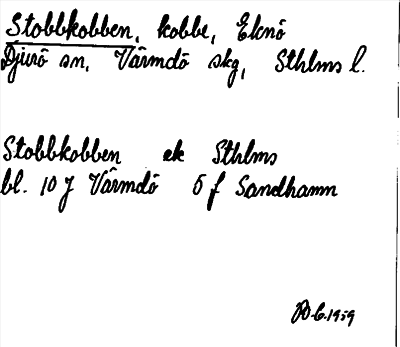 Stobbkobben, kobbe, Eknö
Djurö sn, Värmdö skg, Sthlms l.
Stobbkobben ek Sthlms
bl. 10 J Värmdö 5 f Sandhamn
1959